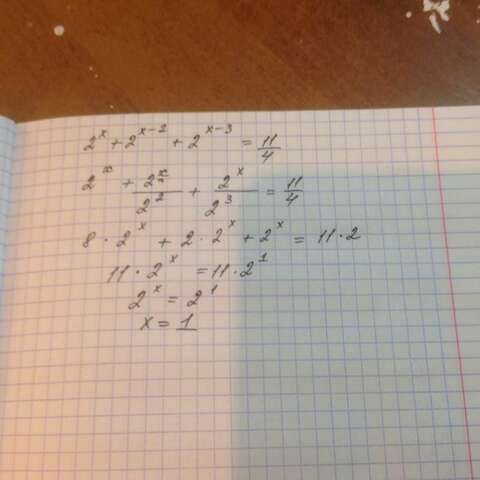 2^x + 2^{x-2} + 2^{x-3} = 11/4
2^x + 2^x/2^2 + 2^x/2^3 = 11/4
8 · 2^x + 2 · 2^x + 2^x = 11 · 2
11 · 2^x = 11 · 2^1
2^x = 2^1
x = 1